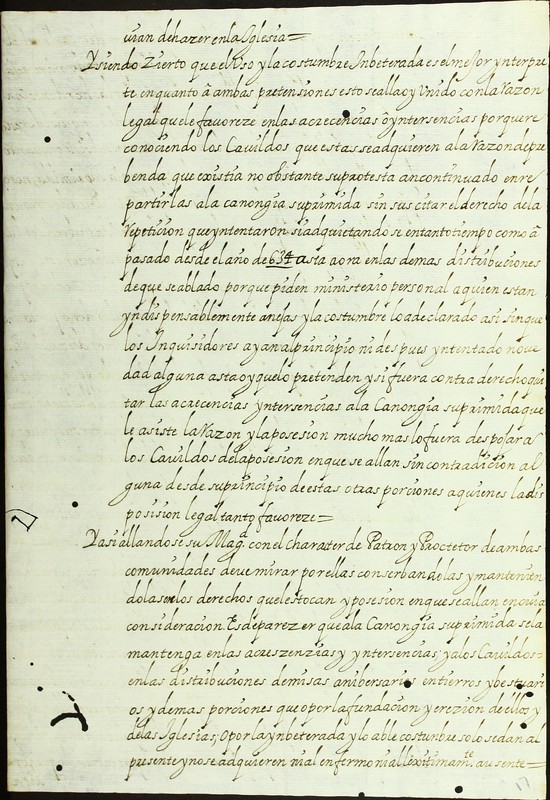 uian de hazer en la Iglesia=
Y siendo Zierto que el Vso y la costumbre Inbeterada es el mejor ynterpre
te en quanto â ambas pretensiones esto se alla oy Vnido con la Razon
legal que le fauoreze en las acrecencias ô yntersencias porque re
conociendo los Cauildos que estas se adquieren a la Razon de pre
benda que existia no obstante su protesta an continuado en re
partirlas a la canongia suprimida sin suscitar el derecho de la
Repeticion que yntentaron siadquietandose en tanto tiempo como â
pasado desde el año de 634 asta aora en las demas distribuciones
de que se ablado porque piden ministerio personal a quien estan
yndispensablemente anejas y la costumbre lo a declarado asi sin que
los Inquisidores ayan al principio ni despues yntentado noue
dad alguna asta oy que lo pretenden y si fuera contra derecho qui
tar las acrecencias yntersencias a la Canongia suprimida que
le asiste la Razon y la posesion mucho mas lo fuera despojar a
los Cauildos de la posesion en que se allan sin contradicion al
guna desde su principio de estas otras porciones a quienes la dis
posision legal tanto fauoreze=
Y asi allandose su Magd. con el charater de Patron y Proctetor de ambas
comunidades deue mirar por ellas conserbandelas y mantenien
dolas en los derechos que les tocan y posesion en que se allan en cuia
consideracion Es de parezer que a la Canongia suprimida se la
mantenga en las acreszenzias y yntersencias y a los Cauildos=
en las distribuciones de misas anibersarios entierros y bestuari
os y demas porciones que o por la fundacion y erezion de ellos y
de las Iglesias, O por la ynbeterada y loable costunbre solo se dan al
presente y no se adquieren ni al enfermo ni al lexitimamte. ausente=
17